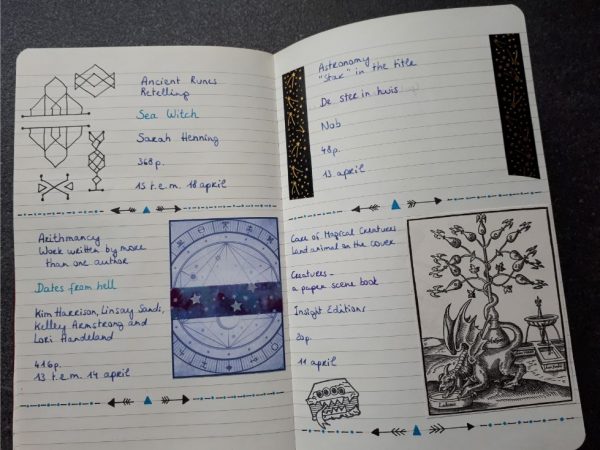 Ancient Runes
Retelling
Sea Witch
Sarah Henning
368p.
15 t.e.m. 18 april
Arithmancy
Work written by more
than one author
Dates from hell
Kim Harrison, Linsay Sands,
Kelley Armstrong and
Lori Handeland
416p.
13 t.e.m. 14 april
Astronomy
"Star" in the title
De ster in huis
Nob
48p.
13 april
Care of Magical Creatures
Land animal on the cover
Creatures -
a paper scene book
Insight Editions
20p.
11 april